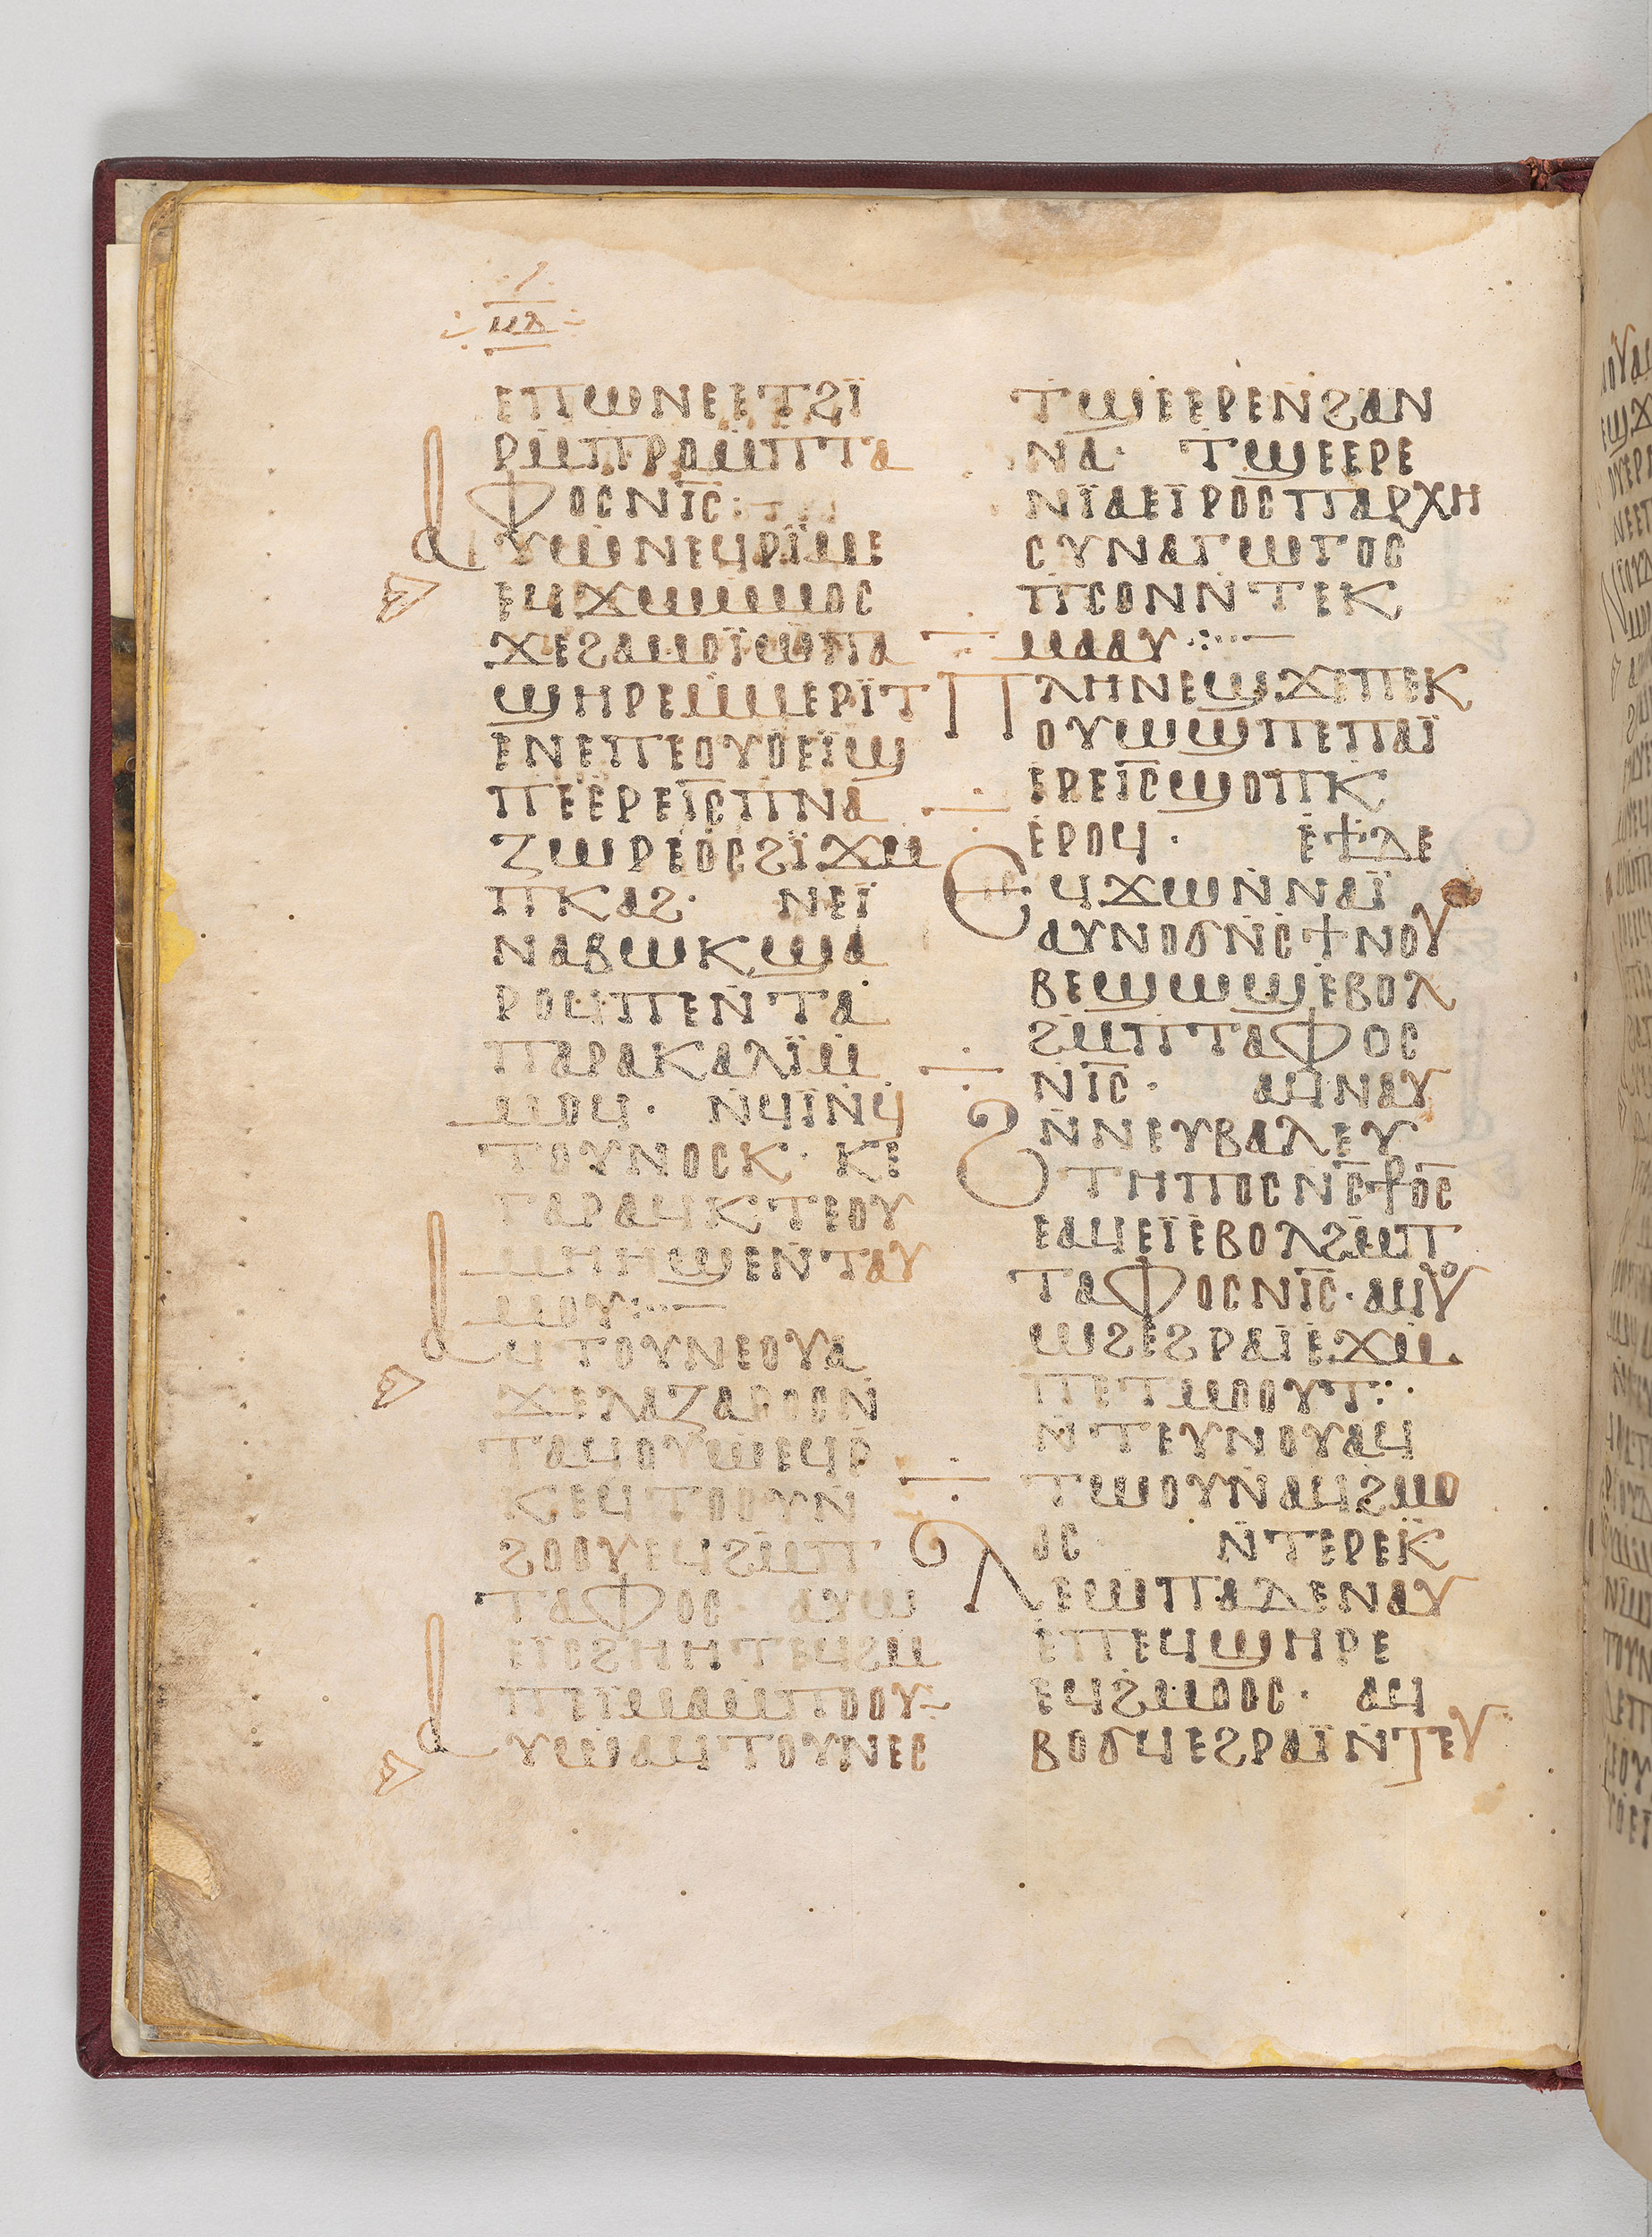 ⲙⲁ
ⲉⲡⲱⲛⲉⲉⲧϩⲓ̈
ⲣⲙ̄ⲡⲣⲟⲙ̄ⲡⲧⲁ
ⲫⲟⲥⲛ̄ⲓ̄ⲥ̄:
ⲁⲩⲱⲛⲉϥⲣⲓ̈ⲙⲉ
ⲉϥϫⲱⲙ̄ⲙⲟⲥ
ϫⲉϩⲁⲙⲟⲓ̈ⲱⲡⲁ
ϣⲏⲣⲉⲙ̄ⲙⲉⲣⲓ̈ⲧ
ⲉⲛⲉⲡⲉⲟⲩⲟⲉⲓ̈ϣ
ⲡⲉⲉ̇ⲣⲉⲓ̄ⲥ̄ⲡⲛⲁ
ⲍⲱⲣⲉⲟⲥϩⲓ̈ϫⲙ̄
ⲡⲕⲁϩ· ⲛⲉⲓ̈
ⲛⲁⲃⲱⲕϣⲁ
ⲣⲟϥⲡⲉⲛ̇ⲧⲁ
ⲡⲁⲣⲁⲕⲁⲗⲓ̈ⲙ̄
ⲙⲟϥ· ⲛ̇ϥⲓ̈ⲛ̇ϥ
ⲧⲟⲩⲛⲟⲥⲕ· ⲕⲉ
ⲅⲁⲣⲁϥⲕⲧⲉⲟⲩ
ⲙⲏⲏϣⲉⲛ̇ⲧⲁⲩ
ⲙⲟⲩ:··—
ⲁϥⲧⲟⲩⲛⲉⲟⲩⲁ
ϫⲉⲗⲁⲍⲁⲣⲟⲥⲛ̇
ⲧⲁϥⲟⲩⲱⲉϥⲣ
ⲕⲉϥⲧⲟⲟⲩⲛ
ϩⲟⲟⲩⲉϥϩⲙ̄ⲡ
ⲧⲁⲫⲟⲥ· ⲁⲩⲱ
ⲉⲓ̈ⲥϩⲏⲏⲧⲉϥϩⲙ̄
ⲡⲉⲓ̈ⲙⲁⲙ̄ⲡⲟⲟⲩ
ⲁⲩⲱⲁϥⲧⲟⲩⲛⲉⲥ
ⲧϣⲉⲉⲣⲉⲛ̇ϩⲁⲛ
ⲛⲁ· ⲧϣⲉⲉⲣⲉ
ⲛ̇ⲓ̈ⲁⲉⲓ̈ⲣⲟⲥⲡⲁⲣⲭⲏ
ⲥⲩⲛⲁⲅⲱⲅⲟⲥ
ⲡⲥⲟⲛⲛ̇ⲧⲉⲕ
ⲙⲁⲁⲩ·:··—
ⲡⲗⲏⲛⲉϣϫⲉⲡⲉⲕ
ⲟⲩⲱϣⲡⲉⲡⲁⲓ̈
ⲉⲣⲉⲓ̄ⲥ̄ϣⲟⲡⲕ
ⲉ̇ⲣⲟϥ· ⲉ̇ϯⲇⲉ
ⲉϥϫⲱⲛ̇ⲛⲁⲓ̈
ⲁⲩⲛⲟϭⲛ̇ⲥϯⲛⲟⲩ
ⲃⲉϣⲱϣⲉ̇ⲃⲟⲗ
ϩⲙ̄ⲡⲧⲁⲫⲟⲥ
ⲛ̇ⲓ̄ⲥ̄· ⲁϥⲛⲁⲩ
ϩⲛ̇ⲛⲉⲩⲃⲁⲗⲉⲩ
ⲧⲏⲡⲟⲥⲛ̇ⲥ̄ⳁⲟⲥ̄
ⲉⲁϥⲉⲓ̈ⲉ̇ⲃⲟⲗϩⲙ̄ⲡ
ⲧⲁⲫⲟⲥⲛ̇ⲓ̄ⲥ̄·ⲁϥⲟⲩ
ⲱϩⲉ̇ϩⲣⲁⲓ̈ⲉ̇ϫⲙ̄
ⲡⲉⲧⲙⲟⲟⲩⲧ:·
ⲛ̇ⲧⲉⲩⲛⲟⲩⲁϥ
ⲧⲱⲟⲩⲛⲁϥϩⲙⲟ
ⲟⲥ ⲛ̇ⲧⲉⲣⲉⲕ
ⲗⲉⲱⲡⲁⲇⲉⲛⲁⲩ
ⲉ̇ⲡⲉϥϣⲏⲣⲉ
ⲉϥϩⲙⲟⲟⲥ· ⲁϥ
ⲃⲟϭϥⲉϩⲣⲁⲓ̈ⲛ̇ⲧⲉⲩ